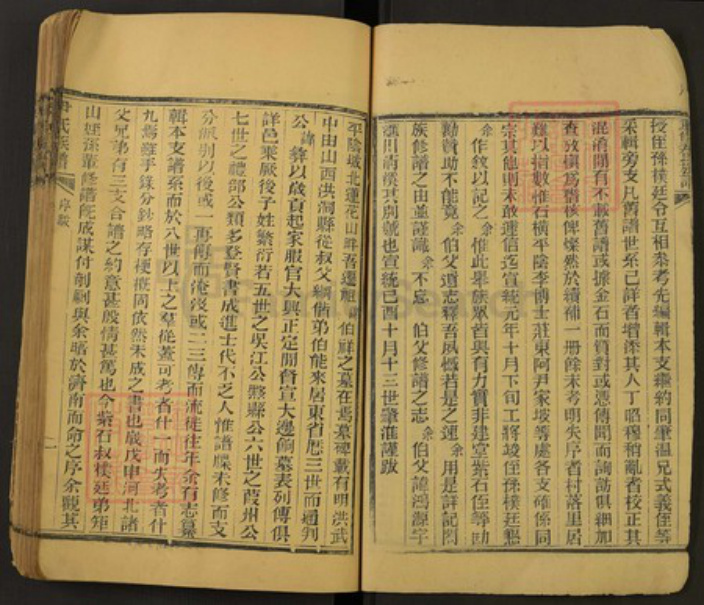 授侄孫樸廷令互相叅考先編輯本支繼約同肇溫兄式義侄等
采輯旁支凡舊譜世系已詳者增添其人丁昭穆稍亂者校正其
混淆間有不載舊譜或據金石而質對或憑傳聞而詢訪俱細加
查攷撰爲譜後俾燦然於續補一册餘未考明失序者村落里居
難以指數惟石橫平陰李博士莊東阿尹家坡等處各支確係同
宗其他則未敢遽信迄宣統元年十月下旬工將竣侄孫樸廷懇
余作叙以記之余惟此舉族衆皆與有力實非建堂紫石侄等助
勷贊助不能竟伯父遺志釋吾夙慨若是之速余用是詳記閤
族修譜之由並謹識余不忘伯父修譜之志余伯父諱鴻源字
漢川清濮其別號也宣統己酉十月十三世肇淮謹跋
尹氏族譜 序跋 一
平陰城北蓮花山畔吾遷祖諱伯祥之墓在焉墓碑載有明洪武
中由山西洪洞縣從叔父綱偕弟伯能來居東省歷三世而通判
公諱彝以歲貢起家服官大興正定開督宣大邊餉墓表列傳俱
詳邑乘厥後子姓繁衍若五世之吳江公黟縣公六世之葭州公
七世之禮部公類多登賢書成進士代不乏人惟譜牒未修而支
分派別以後或一再傳而淹沒或二三傳而流徙往年余有志纂
輯本支譜系而於八世以上之羣從蓋可考者什一而失考者什
九焉雖手錄分鈔略存梗概固依然未成之書也歲戊申河北諸
父兄弟有三支合譜之約意甚殷情甚篤也今紫石叔樸廷弟矩
山姪孫輩修譜既成謀付剞劂與余晤於濟南而命之序余觀其